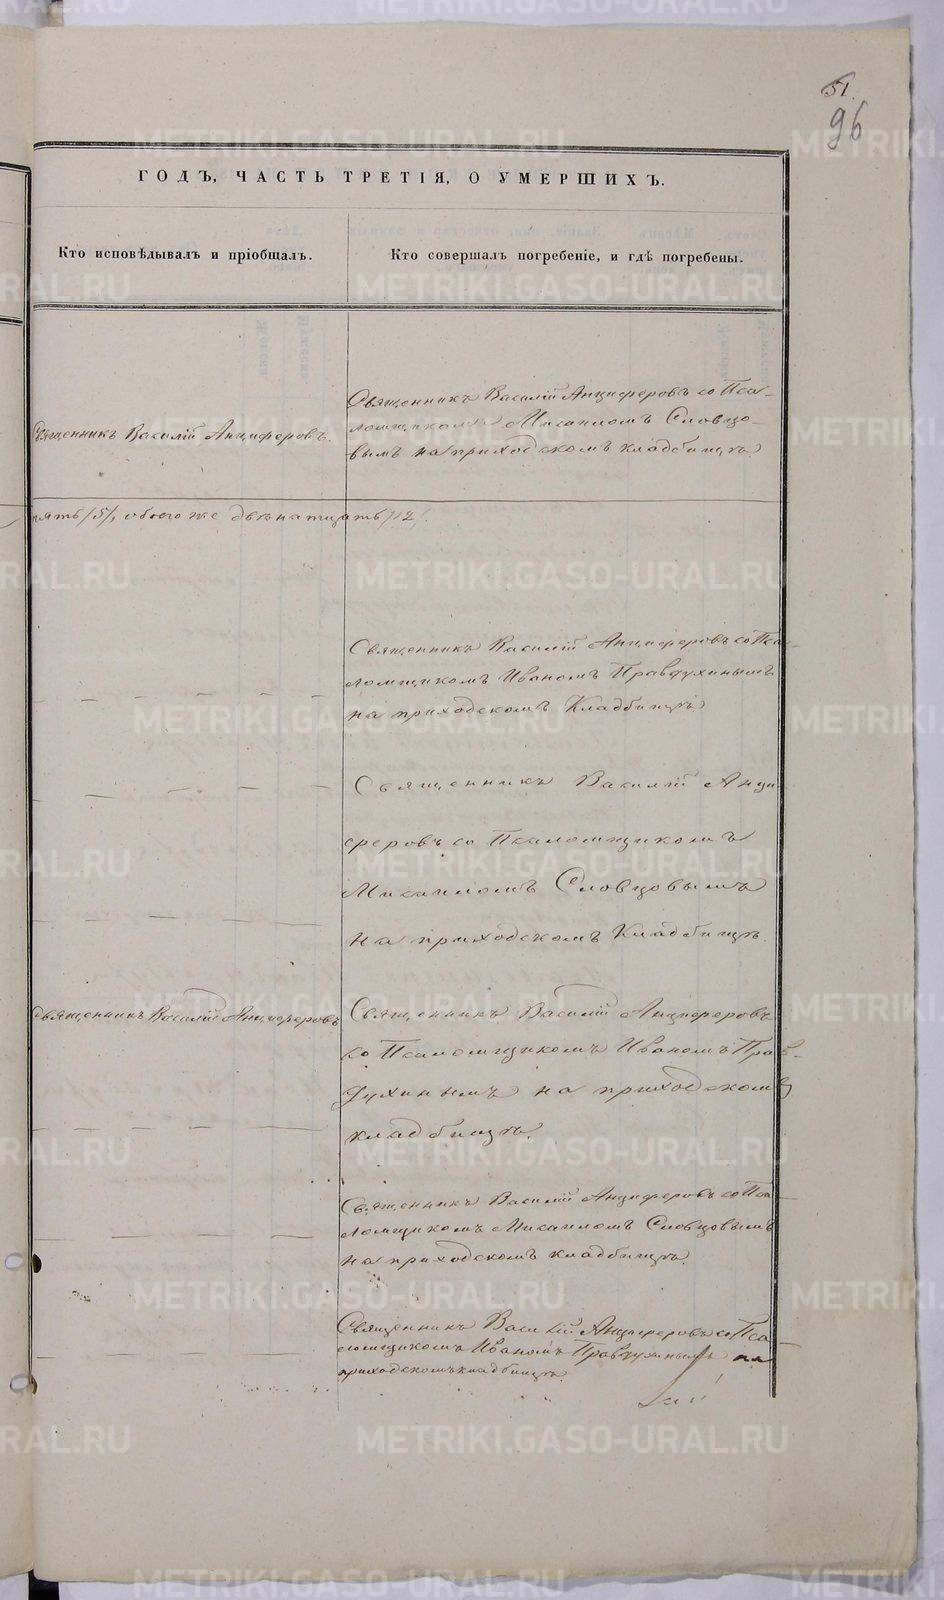 51.
96
ГОДЪ, ЧАСТЬ ТРЕТІЯ, О УМЕРШИХЪ.
Кто исповѣдывалъ и пріобщалъ.
Кто совершалъ погребеніе, и гдѣ погребены.
Священникъ Василій Анциферовъ.
Священникъ Василій Анциферовъ со Пса-
ломщикомъ Михаиломъ Словцо-
вымъ на приходскомъ кладбищѣ
пять /5/, обоего же двѣнатцать /12/.
Священникъ Василій Анциферовъ со Пса-
ломщикомъ Иваномъ Правдухинымъ
на приходскомъ Кладбищѣ
Священникъ Василій Анци-
феровъ со Псаломщикомъ
Михаиломъ Словцовымъ
на приходскомъ Кладбищѣ.
Священникъ Василій Анциферовъ
Священникъ Василій Анциферовъ
со Псаломщикомъ Иваномъ Прав-
духинымъ на приходскомъ
кладбищѣ.
Священникъ Василій Анциферовъ со Пса-
ломщикомъ Михаиломъ Словцовымъ
на приходскомъ кладбищѣ.
Священникъ Василій Анциферовъ со Пса-
ломщикомъ Иваномъ Правдухинымъ на
приходскомъ кладбищѣ.
METRIKI.GASO-URAL.RU